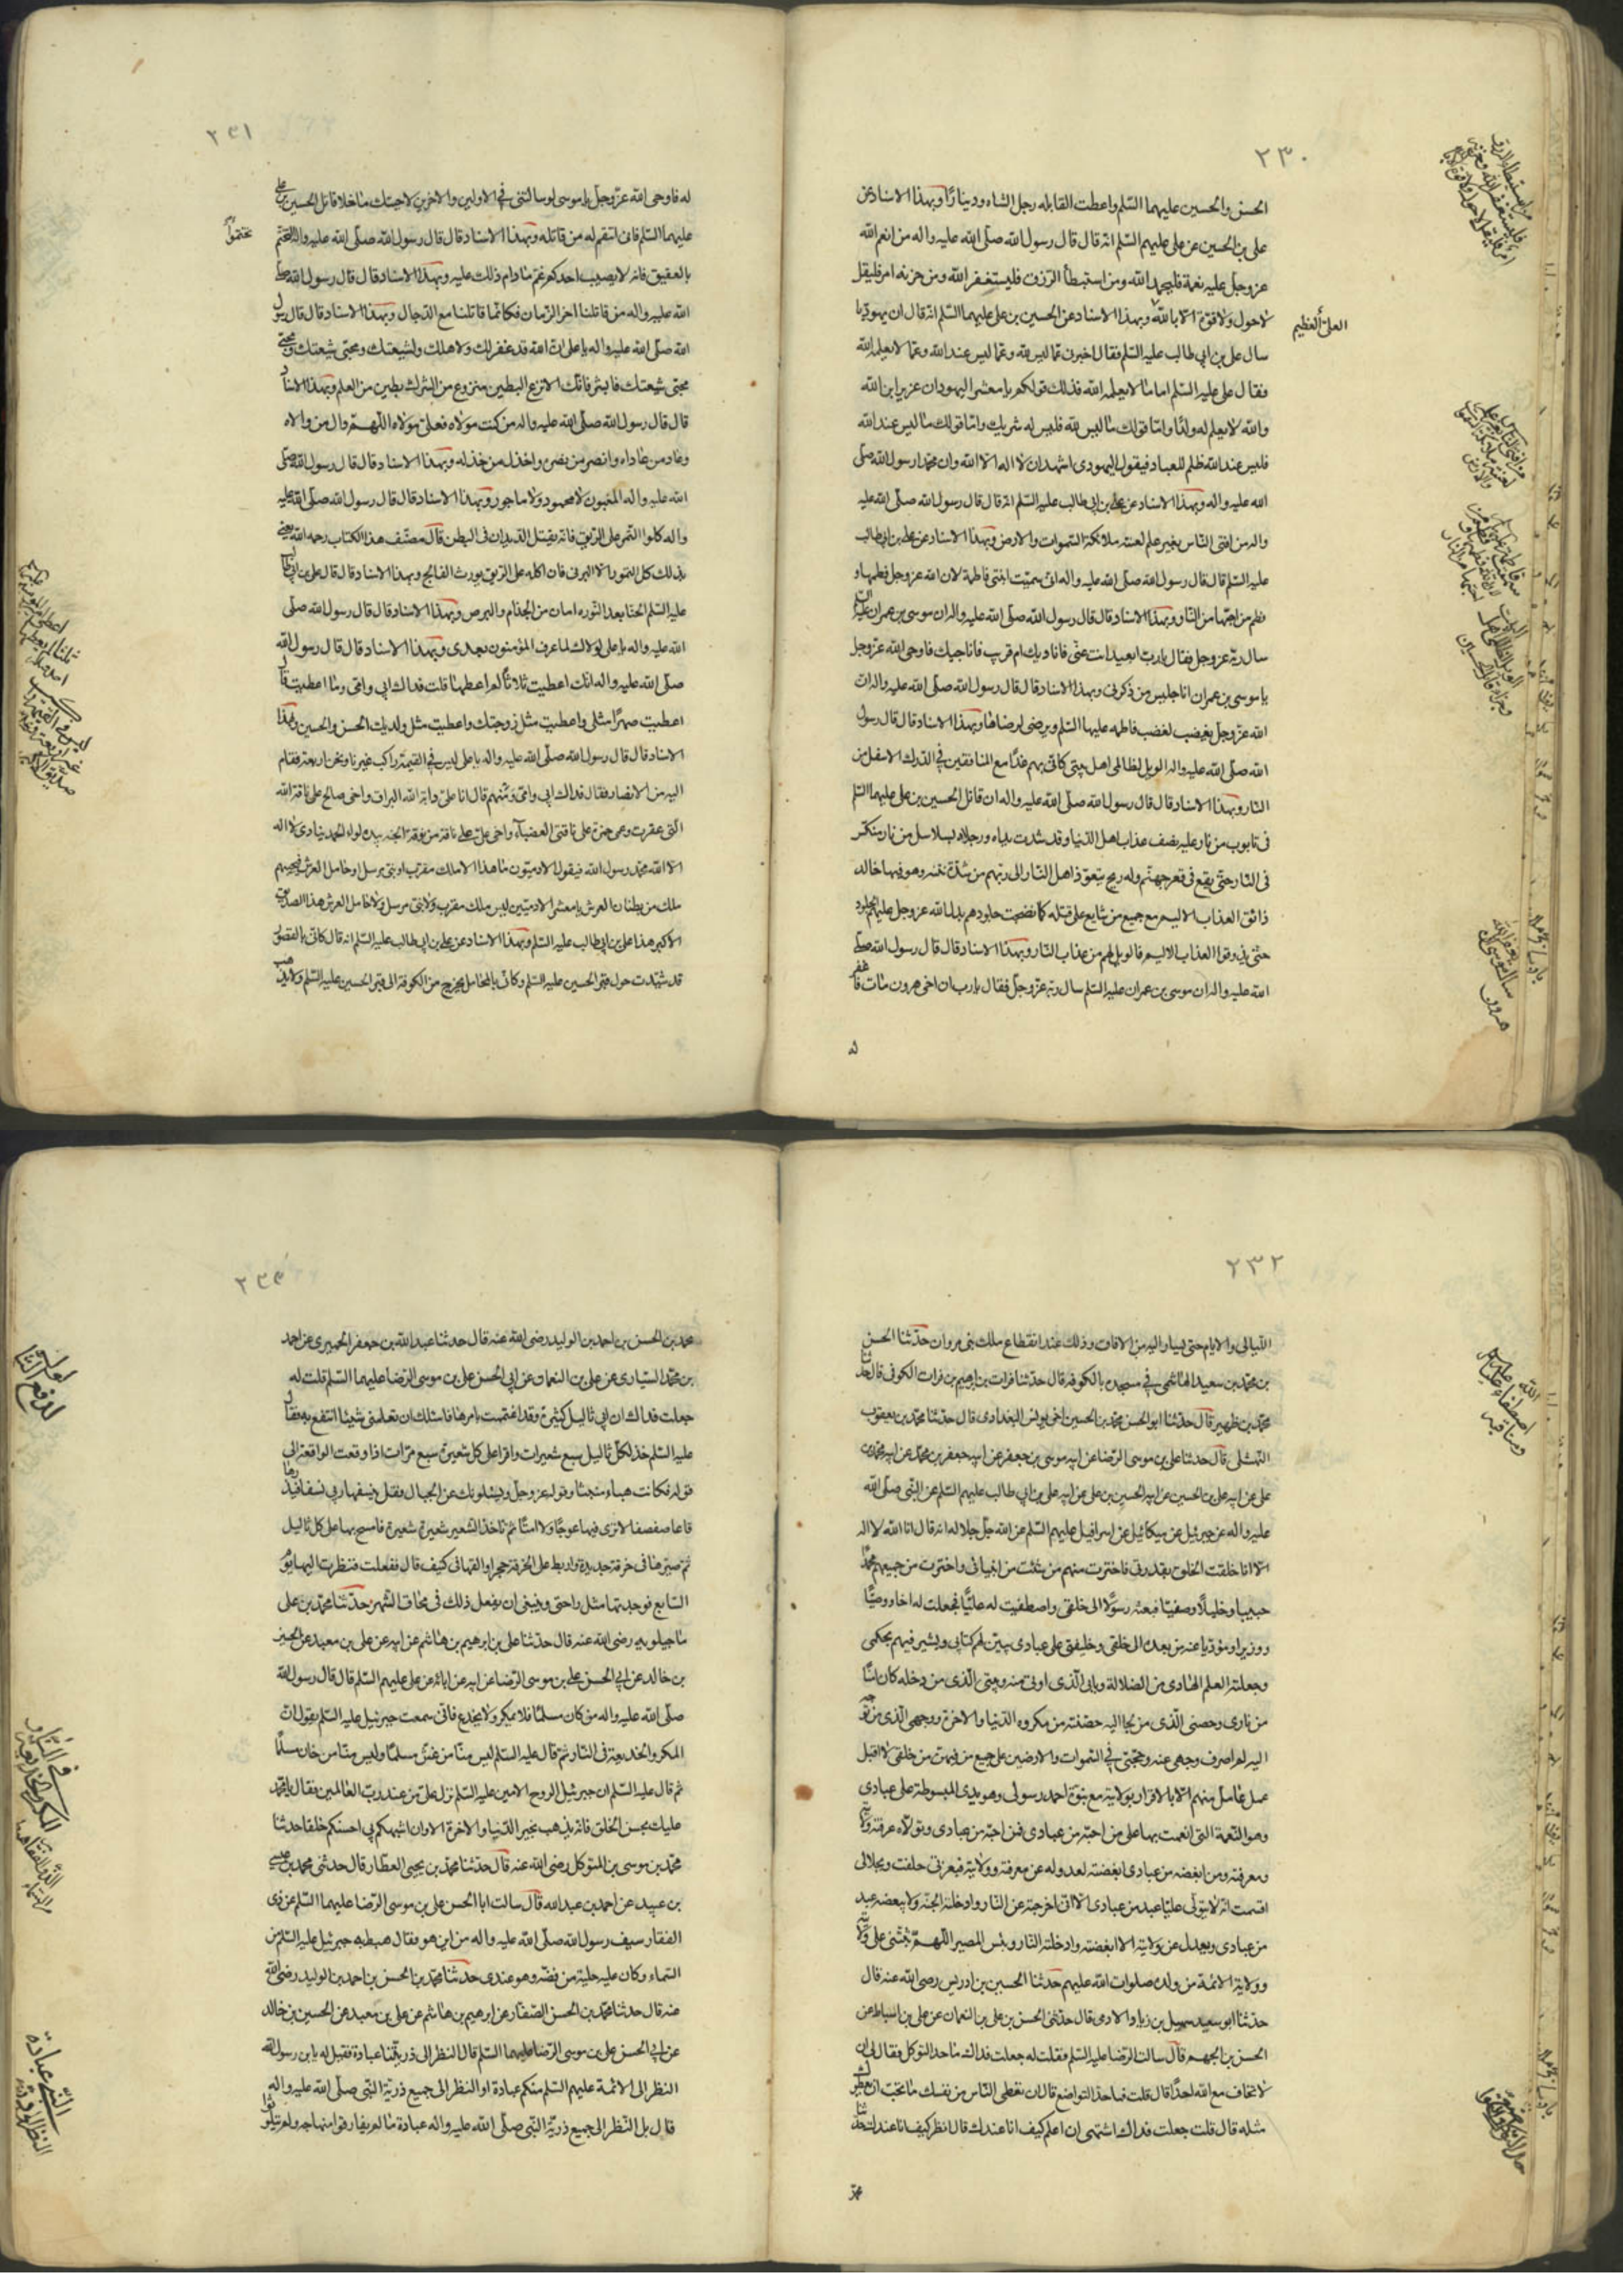 ٢٣٠
الحسن والحسين عليهما السّلم واعطت القابله رجل الشاه ودينارًا وبهذا الاسناد عن
علي بن الحسين عن علي عليهم السّلم انه قال قال رسول الله صلّى الله عليه واله من انعم الله
عز وجل عليه نعمة فليحمد الله ومن استبطأ الرّزق فليستغفر الله ومن حزنه امر فليقل
لا حول ولا قوة الا بالله وبهذا الاسناد عن الحسين بن علي عليهما السّلم انه قال ان يهوديا
العلي العظيم
سال علي بن ابي طالب عليه السّلم فقال اخبرني عما ليس لله وعما ليس عند الله وعما لا يعلمه الله
فقال علي عليه السّلم اما ما لا يعلمه الله فذلك قولكم يا معشر اليهود ان عزير ابن الله
والله لا يعلم له ولدًا واما قولك ما ليس لله فليس له شريك واما قولك ما ليس عند الله
فليس عند الله ظلم للعباد فيقول اليهودي اشهد ان لا اله الا الله وان محمدا رسول الله صلّى
الله عليه واله وبهذا الاسناد عن علي بن ابي طالب عليه السّلم انه قال قال رسول الله صلّى الله عليه
واله من افتى النّاس بغير علم لعنته ملائكة السّموات والارض وبهذا الاسناد عن علي بن ابي طالب
عليه السّلم قال قال رسول الله صلّى الله عليه واله اني سميت ابنتي فاطمة لان الله عز وجل فطمها و
فطم من احبّها من النّار وبهذا الاسناد قال قال رسول الله صلّى الله عليه واله ان موسى بن عمران عليه السلم
سال ربه عز وجل فقال يا رب ابعيد انت عنّي فاناديك ام قريب فاناجيك فاوحى الله عز وجل
يا موسى بن عمران انا جليس من ذكرني وبهذا الاسناد قال قال رسول الله صلّى الله عليه واله ان
الله عز وجل يغضب لغضب فاطمه عليها السّلم ويرضى لرضاها وبهذا الاسناد قال قال رسول
الله صلّى الله عليه واله الويل لظالمي اهل بيتي كاني بهم غدًا مع المنافقين في الدرك الاسفل من
النار وبهذا الاسناد قال قال رسول الله صلّى الله عليه واله ان قاتل الحسين بن علي عليهما السّلم
في تابوت من نار عليه نصف عذاب اهل الدّنيا وقد شدت يداه ورجلاه بسلاسل من نار منكّس
في النّار حتّى يقع في قعر جهنّم وله ريح يتعوّذ اهل النّار الى ربّهم من شدّة نتنه وهو فيها خالد
ذائق العذاب الاليم مع جميع من شايع على قتله كلما نضجت جلودهم بدل الله عز وجل عليهم الجلود
حتّى يذوقوا العذاب الاليم فالويل لهم من عذاب النّار وبهذا الاسناد قال قال رسول الله صلّى
الله عليه واله ان موسى بن عمران عليه السّلم سال ربه عز وجل فقال يا رب ان اخي هرون مات فاغفر
٢٣١
له فاوحى الله عز وجل يا موسى لو سالتني في الاولين والاخرين لاجبتك ما خلا قاتل الحسين بن علي
عليهما السّلم فاني انتقم له من قاتله وبهذا الاسناد قال قال رسول الله صلّى الله عليه واله تختّم
تختموا
بالعقيق فانه لا يصيب احدكم غم ما دام ذلك عليه وبهذا الاسناد قال قال رسول الله صلّى
الله عليه واله من قاتلنا اخر الزّمان فكانّما قاتلنا مع الدّجال وبهذا الاسناد قال قال رسول
الله صلّى الله عليه واله يا علي ان الله قد غفر لك ولاهلك ولشيعتك ومحبي شيعتك ومحبي
محبي شيعتك فابشر فانّك الانزع البطين منزوع من الشرك بطين من العلم وبهذا الاسناد
قال قال رسول الله صلّى الله عليه واله من كنت مولاه فعليّ مولاه اللّهمّ وال من والاه
وعاد من عاداه وانصر من نصره واخذل من خذله وبهذا الاسناد قال قال رسول الله صلّى
الله عليه واله المغبون لا محمود ولا ماجور وبهذا الاسناد قال قال رسول الله صلّى الله عليه
واله كلوا التّمر على الرّيق فانه يقتل الدّيدان في البطن قال مصنّف هذا الكتاب رحمه الله يعني
بذلك كل التمور الا البرني فان اكله على الرّيق يورث الفالج وبهذا الاسناد قال قال علي بن ابي طالب
عليه السّلم الحنّا بعد النّوره امان من الجذام والبرص وبهذا الاسناد قال قال رسول الله صلّى
الله عليه واله يا علي لولاك لما عرف المؤمنون بعدي وبهذا الاسناد قال قال رسول الله
صلّى الله عليه واله انك اعطيت ثلاثاً لم اعطها قلت فداك ابي وامي وما اعطيت قال
اعطيت صهرًا مثلي واعطيت مثل زوجتك واعطيت مثل ولديك الحسن والحسين وبهذا
الاسناد قال قال رسول الله صلّى الله عليه واله يا علي ليس في القيمة راكب غيرنا ونحن اربعة فقام
اليه من الانصار فقال فداك ابي وامي ومن هم قال انا على دابة الله البراق واخي صالح على ناقة الله
الّتي عقرت وعمي حمزة على ناقتي العضباء واخي علي على ناقة من نوق الجنه بيده لواء الحمد ينادي لا اله
الا الله محمد رسول الله فيقول الادميّون ما هذا الا ملك مقرّب او نبي مرسل او حامل العرش فيجيبهم
ملك من بطنان العرش يا معشر الادميّين ليس ملك مقرب ولا نبي مرسل ولا حامل العرش هذا الصديق
الاكبر هذا علي بن ابي طالب عليه السّلم وبهذا الاسناد عن علي بن ابي طالب عليه السّلم انه قال كاني بالقصور
قد شيّدت حول قبر الحسين عليه السّلم وكاني بالمحامل يخرج من الكوفة الى قبر الحسين عليه السّلم ولا يذهب
٢٣٢
اللّيالي والايام حتى يسار اليه من الافاق وذلك عند انقطاع ملك بني مروان حدّثنا الحسن
بن محمد بن سعيد الهاشمي في مسجده بالكوفه قال حدّثنا فرات بن ابرهيم بن فرات الكوفي قال حدثنا
محمّد بن ظهير قال حدّثنا ابو الحسن محمّد بن الحسين اخي يونس البغدادي قال حدّثنا محمّد بن يعقوب
النّهشلي قال حدثنا علي بن موسى الرّضا عن ابيه موسى بن جعفر عن ابيه جعفر بن محمّد عن ابيه محمّد بن
علي عن ابيه علي بن الحسين عن ابيه الحسين بن علي عن ابيه علي بن ابي طالب عليهم السّلم عن النّبي صلّى الله
عليه واله عن جبرئيل عن ميكائيل عن اسرافيل عليهم السّلم عن الله جلّ جلاله انه قال انا الله لا اله
الا انا خلقت الخلق بقدرتي فاخترت منهم من شئت من انبيائي واخترت من جميعهم محمّدًا
حبيبا وخليلًا وصفيّا فبعثته رسولًا الى خلقي واصطفيت له عليًّا فجعلت له اخا ووصيًّا
ووزيرا ومؤدّيا عنه من بعده الى خلقي وخليفتي على عبادي يبيّن لهم كتابي ويسير فيهم بحكمي
وجعلته العلم الهادي من الضلالة وبابي الّذي اوتى منه وبيتي الّذي من دخله كان امنًا
من ناري وحصني الّذي من لجا اليه حصّنته من مكروه الدّنيا والاخرة ووجهي الّذي من توجه
اليه لم اصرف وجهي عنه وحجّتي في السّموات والارضين على جميع من فيهن من خلقي لا اقبل
عمل عامل منهم الّا بالاقرار بولايته مع نبوّة احمد رسولي وهو يدي المبسوطة على عبادي
وهو النّعمة التي انعمت بها على من احببته من عبادي فمن احببته من عبادي وتولّاه عرفته ولايته
ومعرفته ومن ابغضه من عبادي ابغضته لعدوله عن معرفته وولايته فبعزّتي حلفت وبجلالي
اقسمت انّه لا يتولّى عليّا عبد من عبادي الا انّي اخرجته عن النّار وادخلته الجنّة ولا يبغضه عبد
من عبادي ويعدل عن ولايته الا ابغضته وادخلته النّار وبئس المصير اللّهمّ ثبّتني على ولايته
وولاية الائمّة من ولده صلوات الله عليهم حدثنا الحسين بن ادريس رضي الله عنه قال
حدثنا ابو سعيد سهيل بن زياد الادمي قال حدّثني الحسن بن علي بن النّعمان عن علي بن اسباط عن
الحسن بن الجهم قال سالت الرّضا عليه السّلم فقلت له جعلت فداك ما حد التوكل فقال لي ان
لا تخاف مع الله احدًا قال قلت فما حد التواضع قال ان تعطي النّاس من نفسك ما تحبّ ان يعطوك
مثله قال قلت جعلت فداك اشتهي ان اعلم كيف انا عندك قال انظر كيف انا عندك حدثنا
٢٣٣
محمد بن الحسن بن احمد بن الوليد رضي الله عنه قال حدثنا عبد الله بن جعفر الحميري عن احمد
بن محمّد السّيّاري عن علي بن النعمان عن ابي الحسن علي بن موسى الرّضا عليهما السّلم قلت له
جعلت فداك ان ابي ثاليل كثيرة وقد اغتممت بامرها فاسئلك ان تعلمني شيئا انتفع به فقال
عليه السّلم خذ لكل ثاليل سبع شعيرات واقرا على كل شعيرة سبع مرّات اذا وقعت الواقعة الى
قوله فكانت هباء منبثا وقوله عز وجل ويسئلونك عن الجبال فقل ينسفها ربي نسفا فيذرها
قاعا صفصفا لا ترى فيها عوجًا ولا امتًا ثم تاخذ الشعير شعيرة شعيرة فامسح بها على كل ثاليل
ثم صيّرها في خرقة جديدة واربط على الخرقة حجرا والقها في كنيف قال ففعلت فنظرت اليها يوم
السّابع فوجدتها مثل راحتي وينبغي ان يفعل ذلك في محاق الشّهر حدّثنا محمّد بن علي
ماجيلويه رضي الله عنه قال حدّثنا علي بن ابرهيم بن هاشم عن ابيه عن علي بن معبد عن الحسين
بن خالد عن ابي الحسن علي بن موسى الرّضا عن ابيه عن ابائه عن علي عليهم السّلم قال قال رسول الله
صلّى الله عليه واله من كان مسلمًا فلا يمكر ولا يخدع فاني سمعت جبرئيل عليه السّلم يقول ان
المكر والخديعة في النّار ثم قال عليه السّلم ليس منّا من غشّ مسلمًا وليس منّا من خان مسلمًا
ثم قال عليه السّلم ان جبرئيل الروح الامين عليه السّلم نزل عليّ من عند رب العالمين فقال يا محمّد
عليك بحسن الخلق فانه يذهب بخير الدّنيا والاخرة الا وان اشبهكم بي احسنكم خلقا حدثنا
محمّد بن موسى بن المتوكل رضي الله عنه قال حدّثنا محمّد بن يحيى العطّار قال حدثني محمد بن عيسى
بن عبيد عن احمد بن عبد الله قال سالت ابا الحسن علي بن موسى الرّضا عليهما السّلم عن ذي
الفقار سيف رسول الله صلّى الله عليه واله من اين هو فقال هبط به جبرئيل عليه السّلم من
السّماء وكان عليه حلية من فضّه وهو عندي حدثنا محمّد بن الحسن بن احمد بن الوليد رضي الله
عنه قال حدثنا محمّد بن الحسن الصّفّار عن ابرهيم بن هاشم عن علي بن معبد عن الحسين بن خالد
عن ابي الحسن علي بن موسى الرّضا عليهما السّلم قال النظر الى ذريّتنا عبادة فقيل له يا بن رسول الله
النظر الى الائمّة عليهم السّلم منكم عبادة او النظر الى جميع ذريّة النّبي صلّى الله عليه واله
قال بل النّظر الى جميع ذريّة النّبي صلّى الله عليه واله عبادة ما لم يفارقوا منهاجه ولم يتلوثوا